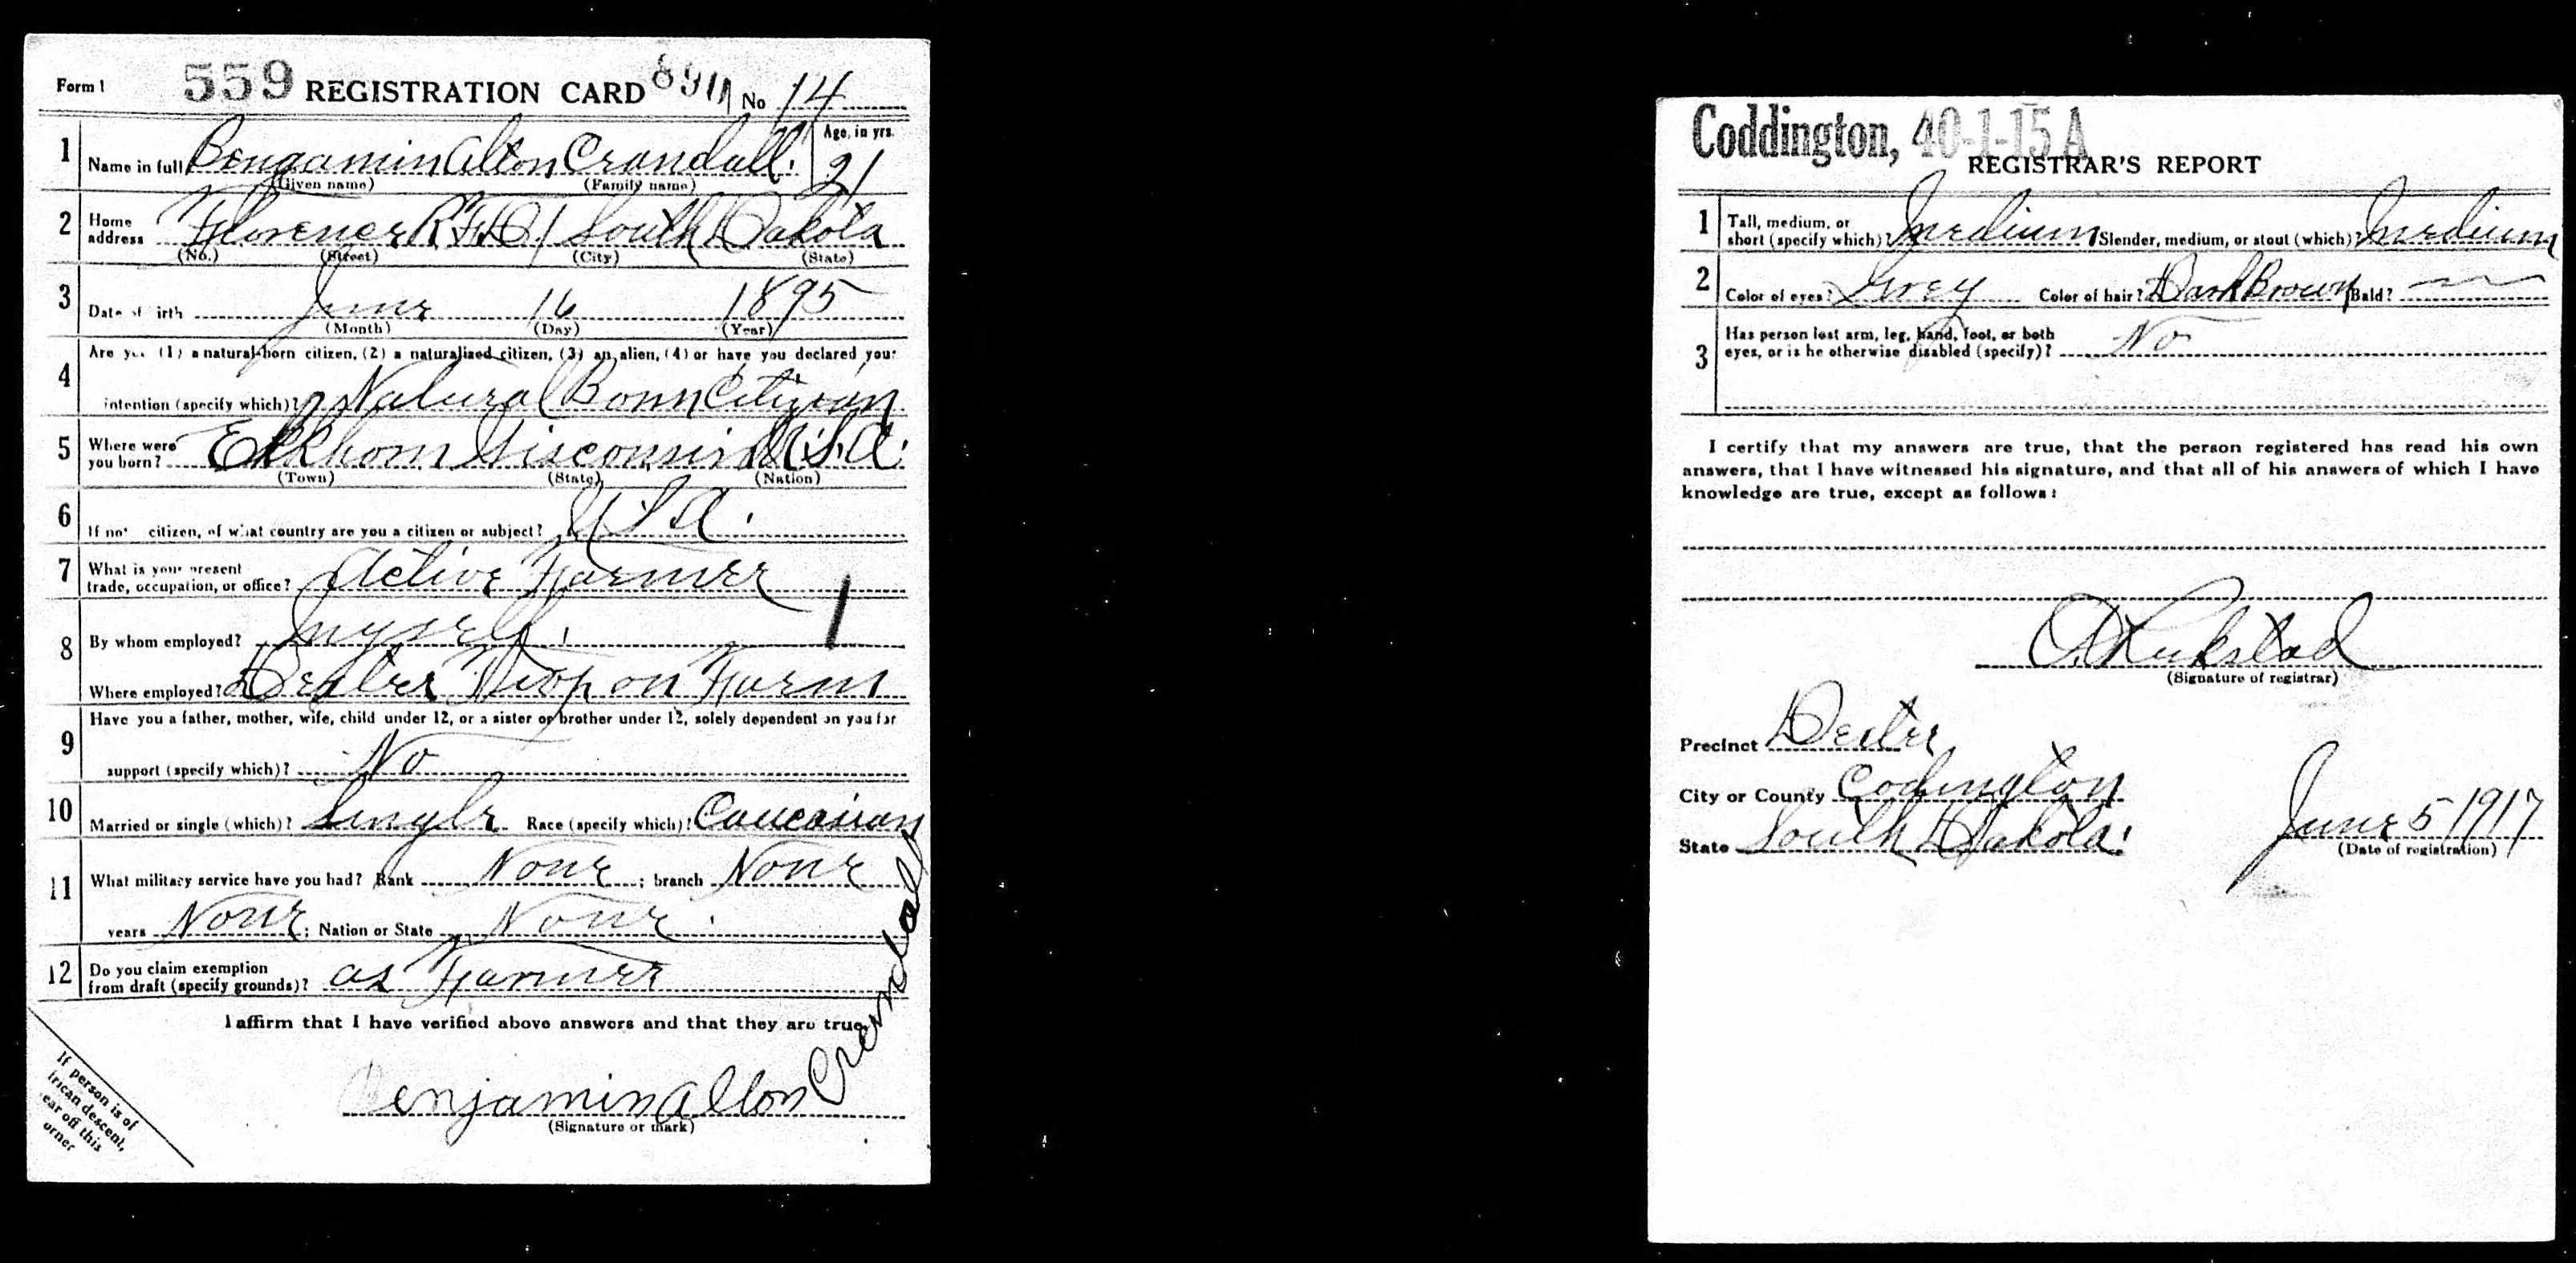 Form 1 559 REGISTRATION CARD No 14
1 Name in full Bengamin Alton Crandall. Age, in yrs. 21
(Given name) (Family name)
2 Home address Florence R.F.D. 1 South Dakota
(No.) (Street) (City) (State)
3 Date of irth June 16 1895
(Month) (Day) (Year)
4 Are you (1) a natural-born citizen, (2) a naturalized citizen, (3) an alien, (4) or have you declared your
intention (specify which)? Natural Born Citizian
5 Where were you born? Elkhorn Wisconsin U.S.A.
(Town) (State) (Nation)
6 If not citizen, of what country are you a citizen or subject? U.S.A.
7 What is your present
trade, occupation, or office? Active Farmer
8 By whom employed? Myself.
Where employed? Dexter Twp on Farm
9 Have you a father, mother, wife, child under 12, or a sister or brother under 12, solely dependent on you for
support (specify which)? No
10 Married or single (which)? Single Race (specify which)? Caucasian
11 What military service have you had? Rank None ; branch None
years None ; Nation or State None.
12 Do you claim exemption
from draft (specify grounds)? as Farmer
I affirm that I have verified above answers and that they are true.
Benjamin Alton Crandall
(Signature or mark)
If person is of
frican descent,
ear off this
orner
Coddington, 40-1-15 A
REGISTRAR'S REPORT
1 Tall, medium, or
short (specify which)? Medium Slender, medium, or stout (which)? Medium
2 Color of eyes? Grey Color of hair? Dark Brown Bald?
3 Has person lost arm, leg, hand, foot, or both
eyes, or is he otherwise disabled (specify)? No
I certify that my answers are true, that the person registered has read his own
answers, that I have witnessed his signature, and that all of his answers of which I have
knowledge are true, except as follows:
(Signature of registrar)
Precinct Dexter
City or County Codington
State South Dakota. June 5 1917
(Date of registration)